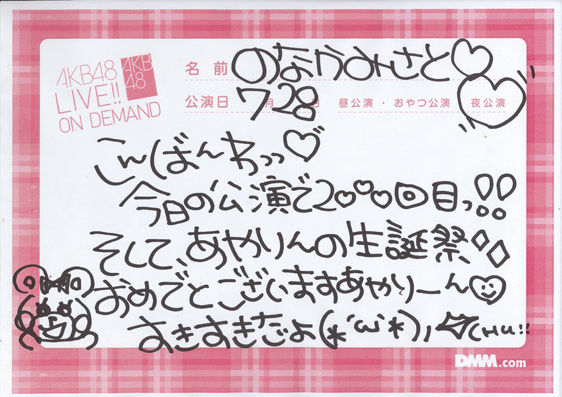 AKB48
LIVE!!
ON DEMAND
AKB
48
名前 のなかみさと♡
公演日 7月28日 昼公演・おやつ公演 夜公演
こんばんわっっ♡
今日の公演で2♡♡♡回目っ!!
そして、あやりんの生誕祭
おめでとございますあやりーん♡
すきすきだよ(*´ω`*)
CHU!!
DMM.com